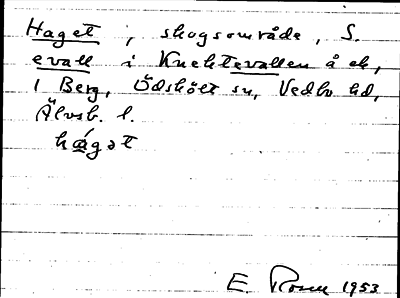 Haget, skogsområde, S.
evall i Knektevallen å ek,
1 Berg, Ödskölt sn, Vedbo hd,
Älvsb. l.
hágət
E. Rosen 1953